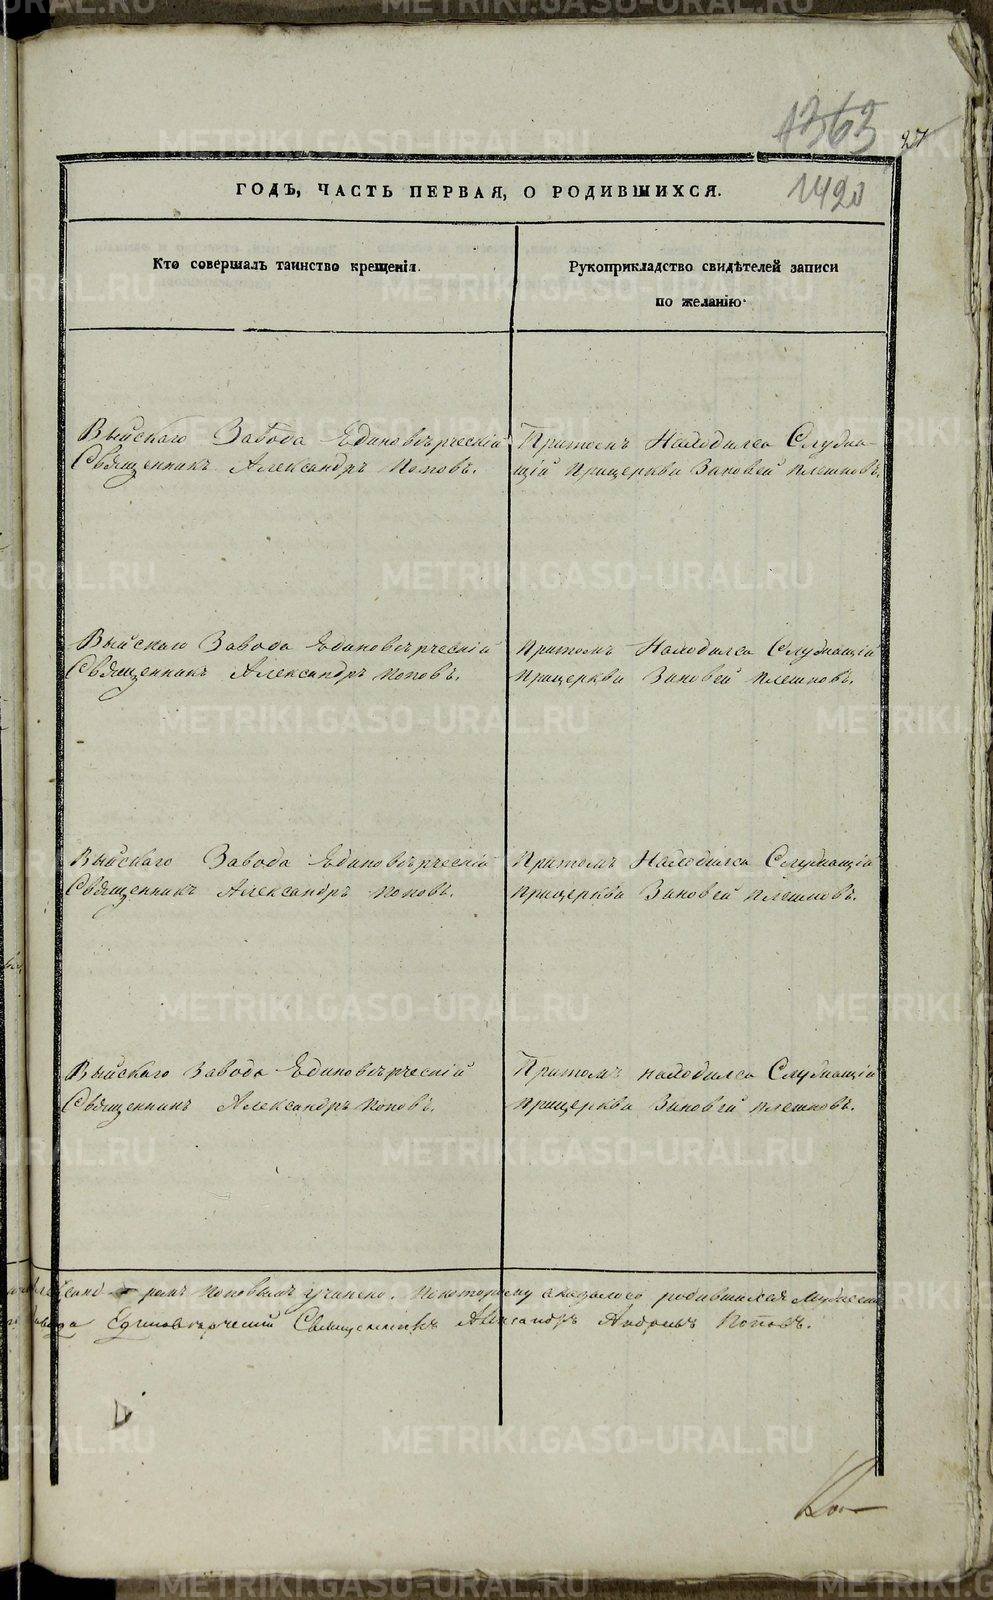 1363
27
1420
ГОДЪ, ЧАСТЬ ПЕРВАЯ, О РОДИВШИХСЯ.
Кто совершалъ таинство крещенія.
Рукоприкладство свидѣтелей записи
по желанію
Выйскаго Завода Единовѣрческій
Священникъ Александръ Поповъ.
Притомъ Находился Служа-
щій Прицеркви Зиновей Плешковъ.
Выйскаго Завода Единовѣрческій
Священникъ Александръ Поповъ.
Притомъ Находился Служащій
Прицеркви Зиновей Плешковъ.
Выйскаго Завода Единовѣрческій
Священникъ Александръ Поповъ.
Притомъ Находился Служащій
Прицеркви Зиновей Плешковъ.
Выйскаго Завода Единовѣрческій
Священникъ Александръ Поповъ.
Притомъ находился Служащій
Прицеркви Зиновей Плешковъ.
ромъ Поповымъ учинено. Покоторому оказалося родившихся
завода Единовѣрческій Священникъ Александръ Поповъ.
METRIKI.GASO-URAL.RU